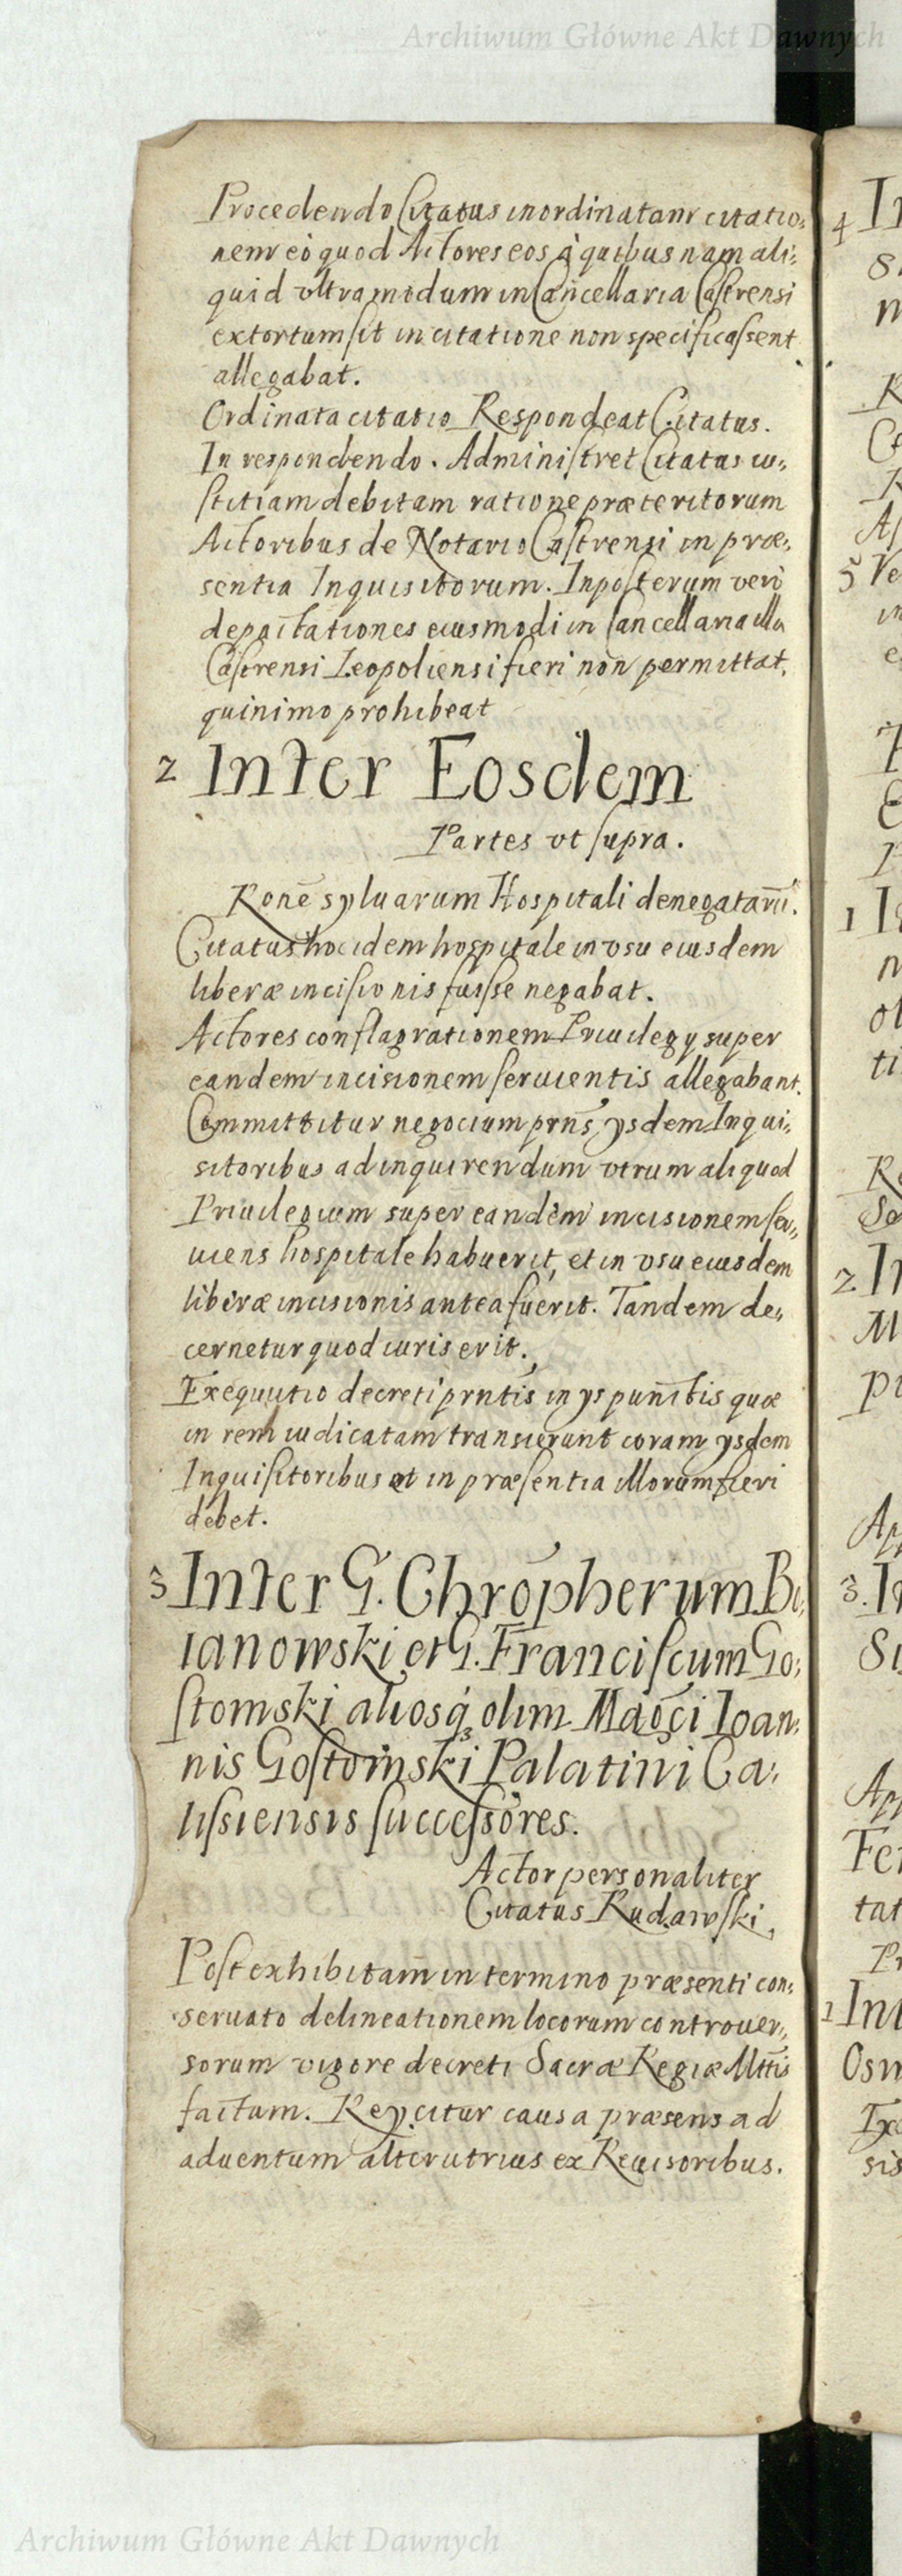 Archiwum Główne Akt Dawnych
Procedendo Citatus inordinatam citatio,
nem eò quod Actores eos à quibusnam ali,
quid vltra modum in Cancellaria Castrensi
extortum sit in citatione non specificassent
allegabat.
Ordinata citatio Respondeat Citatus.
In respondendo. Administret Citatus iu,
stitiam debitam ratione præteritorum
Actoribus de Notario Castrensi in præ,
sentia Inquisitorum. Inposterum verò
depactationes eiusmodi in Cancellaria illa
Castrensi Leopoliensi fieri non permittat,
quinimo prohibeat
2 Inter Eosdem
Partes vt supra.
Ronē syluarum Hospitali denegatarū.
Citatus hoc idem hospitale in vsu eiusdem
liberæ incisionis fuisse negabat.
Actores conflagrationem Priuilegy super
eandem incisionem seruientis allegabant.
Committitur negocium prns ysdem Inqui,
sitoribus ad inquirendum vtrum aliquod
Priuilegium super eandem incisionem ser,
uiens hospitale habuerit, et in vsu eiusdem
liberæ incisionis antea fuerit. Tandem de,
cernetur quod iuris erit.
Exequutio decreti prntis in ys punctis quæ
in rem iudicatam transierunt coram ysdem
Inquisitoribus et in præsentia illorum fieri
debet.
3 Inter G. Chrōpherum Bo,
ianowski et G. Franciscum Go,
stomski aliosq olim Magci Ioan,
nis Gostomski Palatini Ca,
lissiensis successores.
Actor personaliter
Citatus Rudawski
Post exhibitam in termino præsenti con,
seruato delineationem locorum controuer,
sorum vigore decreti Sacræ Regiæ Mttis
factam. Reycitur causa præsens ad
aduentum alterutrius ex Reuisoribus.
Archiwum Główne Akt Dawnych